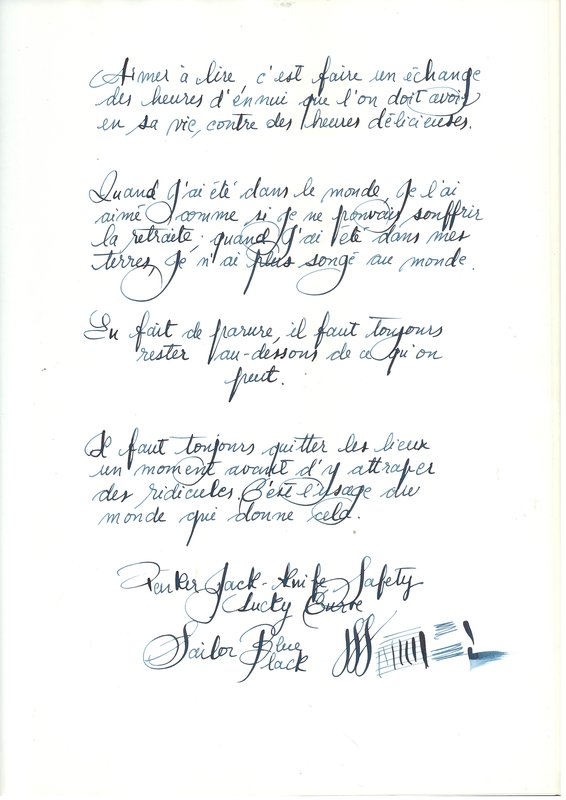 Aimer à lire, c'est faire un échange
des heures d'ennui que l'on doit avoir
en sa vie, contre des heures délicieuses.
Quand j'ai été dans le monde, je l'ai
aimé comme si je ne pouvais souffrir
la retraite; quand j'ai été dans mes
terres, je n'ai plus songé au monde.
En fait de parure, il faut toujours
rester au-dessous de ce qu'on
peut.
Il faut toujours quitter les lieux
un moment avant d'y attraper
des ridicules. C'est l'usage du
monde qui donne cela.
Parker Jack-Knife Safety
Lucky Curve
Sailor Blue
Black